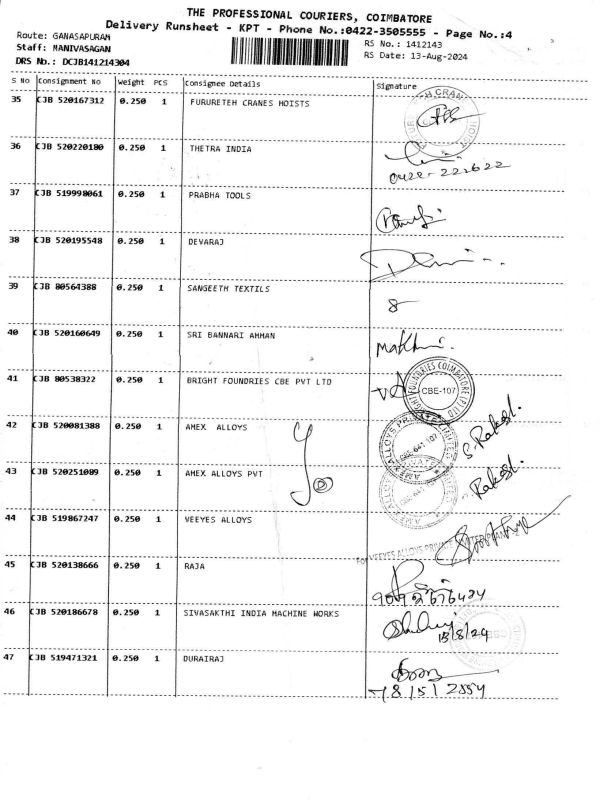 THE PROFESSIONAL COURIERS, COIMBATORE
Delivery Runsheet - KPT - Phone No.:0422-3505555 - Page No.:4
Route: GANASAPURAM
RS No.: 1412143
Staff: MANIVASAGAN
RS Date: 13-Aug-2024
DRS No.: DCJB141214304
S No Consignment No Weight PCS Consignee Details Signature
35 CJB 520167312 0.250 1 FURURETEH CRANES HOISTS
36 CJB 520220180 0.250 1 THETRA INDIA
0422-222622
37 CJB 519998061 0.250 1 PRABHA TOOLS
38 CJB 520195548 0.250 1 DEVARAJ
39 CJB 80564388 0.250 1 SANGEETH TEXTILS
40 CJB 520160649 0.250 1 SRI BANNARI AMMAN
41 CJB 80538322 0.250 1 BRIGHT FOUNDRIES CBE PVT LTD
CBE-107
42 CJB 520081388 0.250 1 AMEX ALLOYS
S. Rakesh.
43 CJB 520251089 0.250 1 AMEX ALLOYS PVT
Rakesh.
44 CJB 519867247 0.250 1 VEEYES ALLOYS
For VEEYES ALLOYS PRIVATE LIMITED
45 CJB 520138666 0.250 1 RAJA
46 CJB 520186678 0.250 1 SIVASAKTHI INDIA MACHINE WORKS
13/8/24
47 CJB 519471321 0.250 1 DURAIRAJ